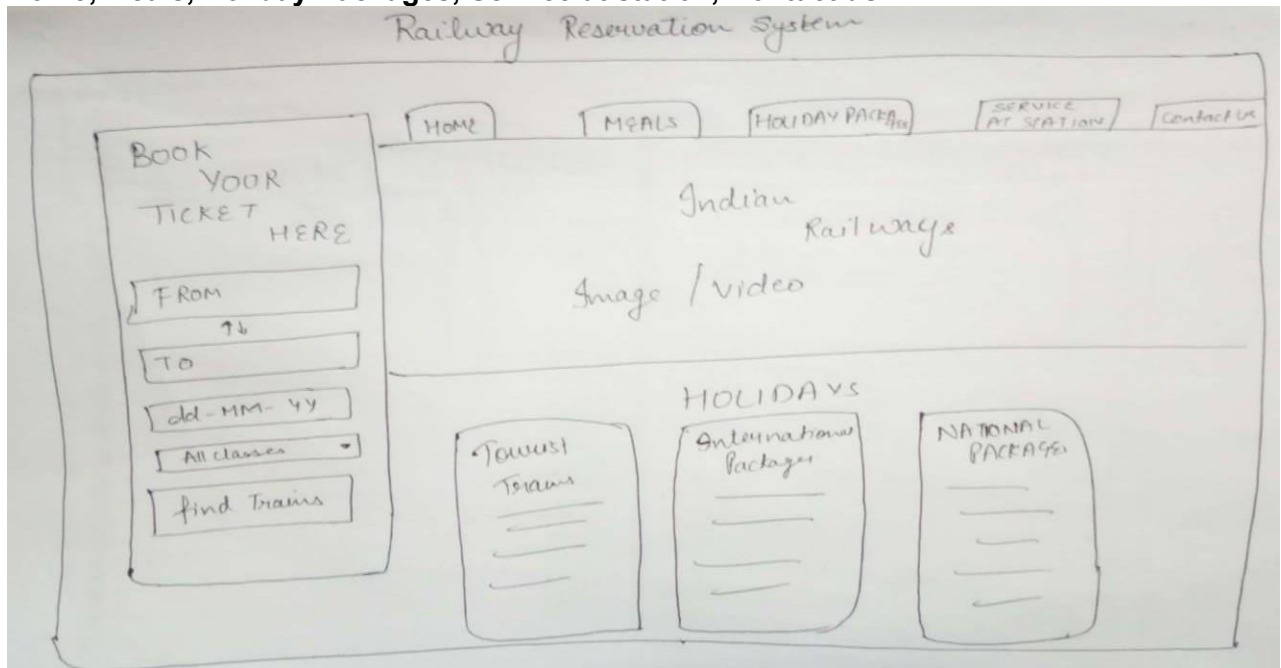 Railway Reservation System
HOME
MEALS
HOLIDAY PACKAGES
SERVICE
AT STATION
Contact Us
BOOK
YOUR
TICKET
HERE
FROM
↑↓
TO
dd-MM-YY
All classes
find Trains
Indian
Railways
Image / Video
HOLIDAYS
Tourist
Trains
International
Packages
NATIONAL
PACKAGES